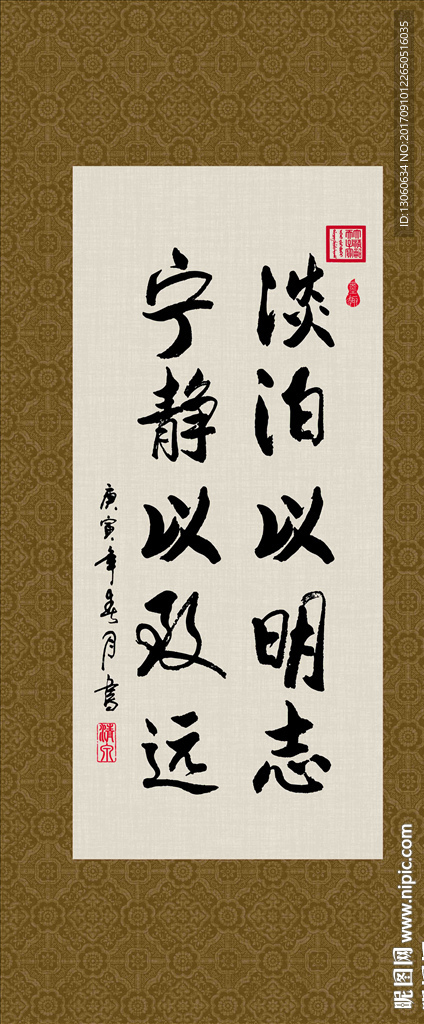 淡泊以明志
宁静以致远
庚寅年春月书
清泉
ID:13060634 NO:20170910122650516035
昵图网 www.nipic.com